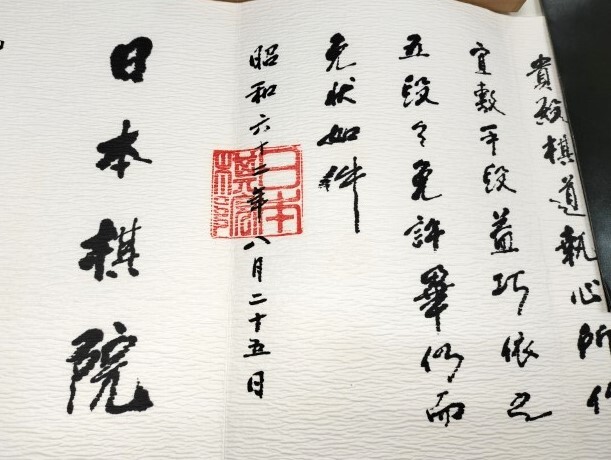 貴殿棋道執心所作
宜敷手段益巧依之
五段令免許畢仍而
免状如件
昭和六十二年八月二十五日
日本棋院